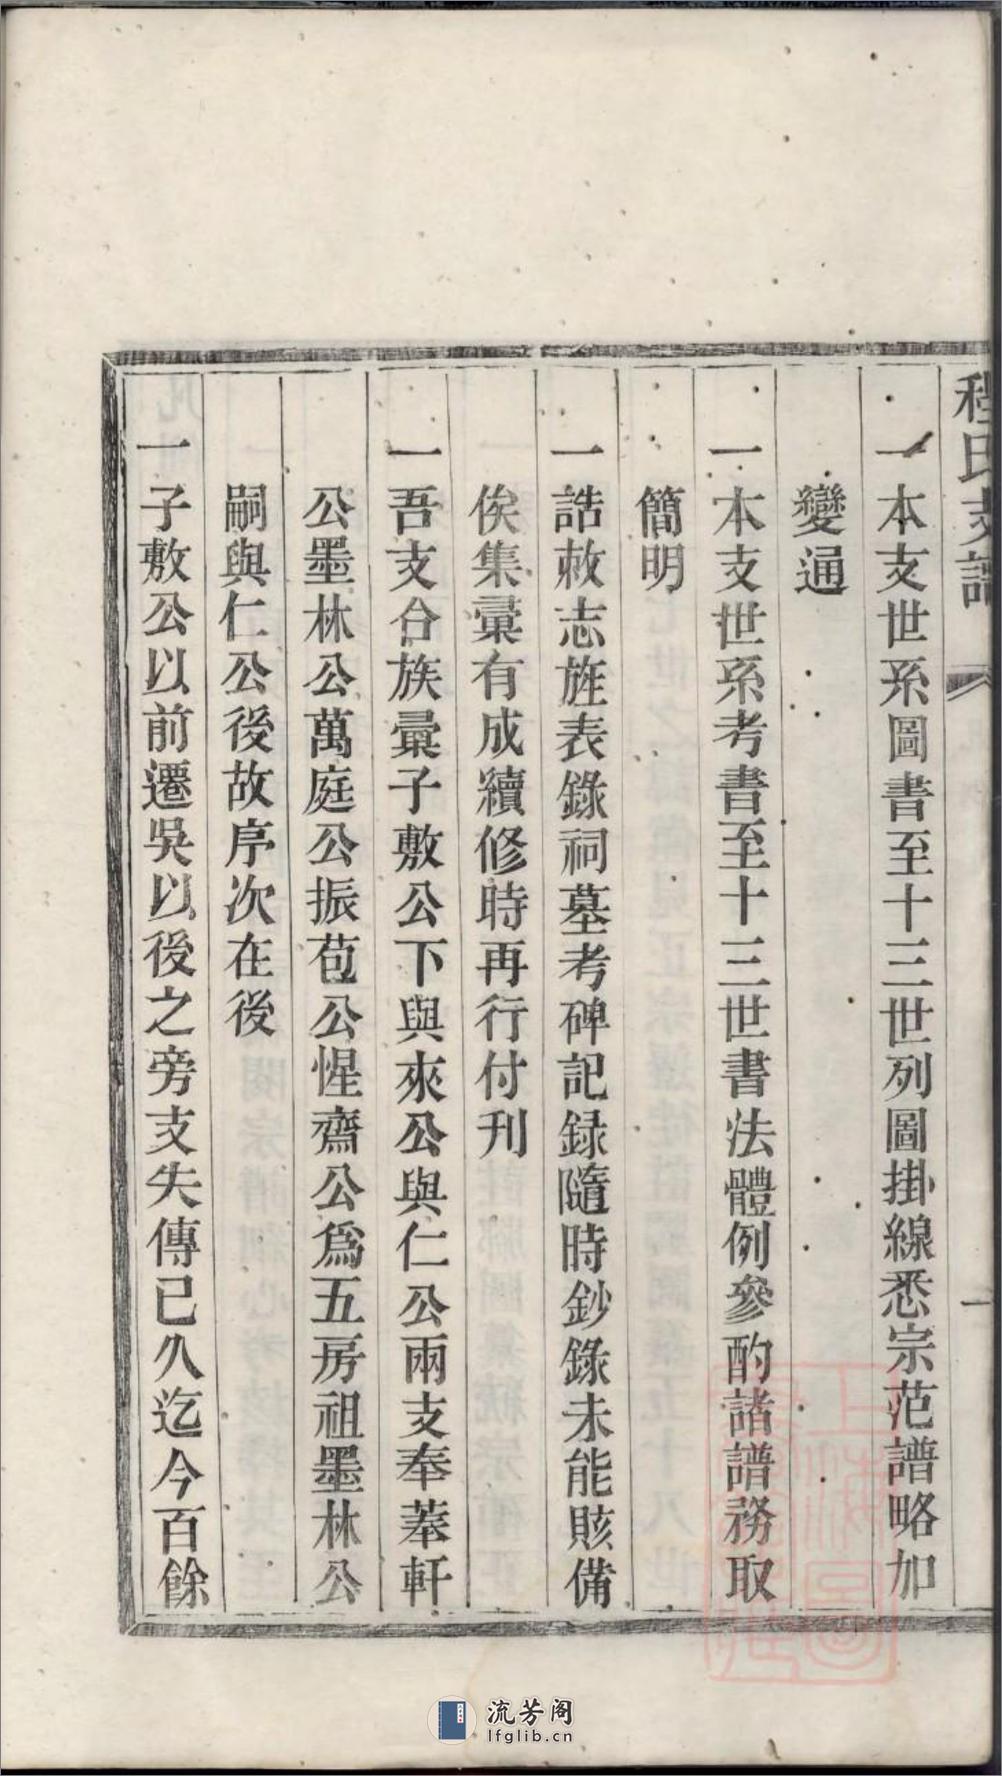 程氏支譜
一
一本支世系圖書至十三世列圖掛線悉宗范譜略加
變通
一本支世系考書至十三世書法體例參酌諸譜務取
簡明
一誥敕志旌表錄祠墓考碑記録隨時鈔錄未能賅備
俟集彙有成續修時再行付刊
一吾支合族彙子敷公下與來公與仁公兩支奉菶軒
公墨林公萬庭公振苞公惺齋公爲五房祖墨林公
嗣與仁公後故序次在後
一子敷公以前遷吳以後之旁支失傳已久迄今百餘
流芳阁
lfglib.cn